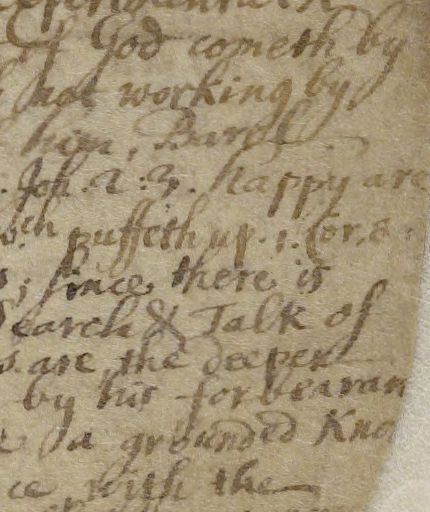 of God cometh by
not working by
him, Barel
. Joh. 2 : 3. happy are
ch puffeth up. 1. Cor. 8
; since there is
Search & Talk of
are the deeper
by his forbearan
a grounded Kno
ce with the